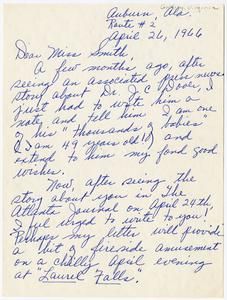 Auburn, Ala.
Route #2
April 26, 1966
Dear Miss Smith,
A few months ago, after
seeing an associated press news
story about Dr. J. C. Dover, I
just had to write him a
note, and tell him I am one
of his "thousands of babies"
(I am 49 years old!) and
extend to him my fond good
wishes.
Now, after seeing the
story about you in The
Atlanta Journal on April 24th,
I feel urged to write to you!
Perhaps my letter will provide
a bit of fireside amusement
on a chilly April evening
at "Laurel Falls".